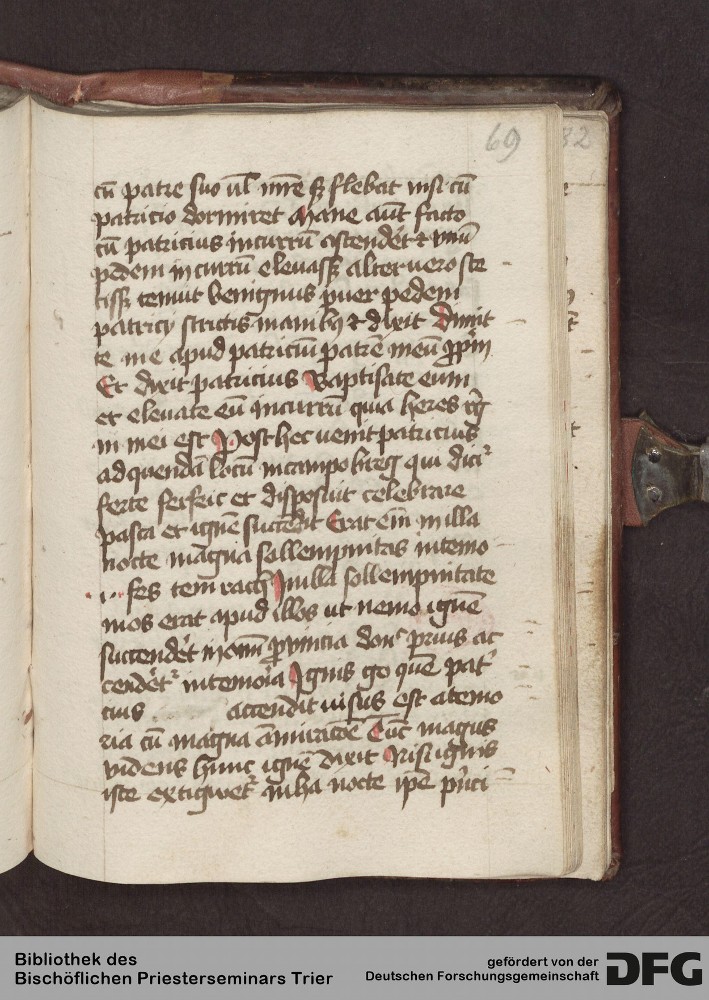 69
82
cū patre suo ul mr̄e sꝫ flebat nisi cū
patricio dormiret Mane aūt facto
cū patricius in currū ascendēt ⁊ vnū
pedem in currū eleuassꝫ alter uero ste
tissꝫ tenuit benignus puer pedem
patricij strictis manibꝫ ⁊ dixit Dimit
te me apud patriciū patrē meū ꝓpriū
Et dixit patricius Baptisate eum
et eleuate eū in currū quia heres
ni mei est Post hec uenit patricius
ad quendā locū in campo breg qui dicir
ferte feifeic et disposuit celebrare
pasca et ignē succēdit Erat em̄ in illa
nocte magna sollempnitas in temo
fes tem̄rach In illa sollempnitate
mos erat apud illos ut nemo ignē
succendēt in om̄i ꝓuincia donc prius ac
cendēt in temoria Ignis go quē pat
cius accendit uisus est a temo
ria cū magna āmiratōe Tūc magus
videns hunc ignē dixit Nisi ignis
iste extigwet in ha nocte ipē
Bibliothek des
Bischöflichen Priesterseminars Trier
gefördert von der
Deutschen Forschungsgemeinschaft
DFG